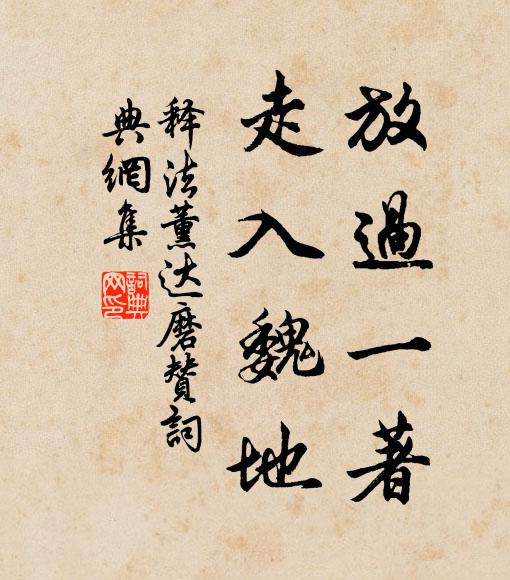 放過一著
走入魏地
释法薰达磨赞詞
典網集
詞典
网印